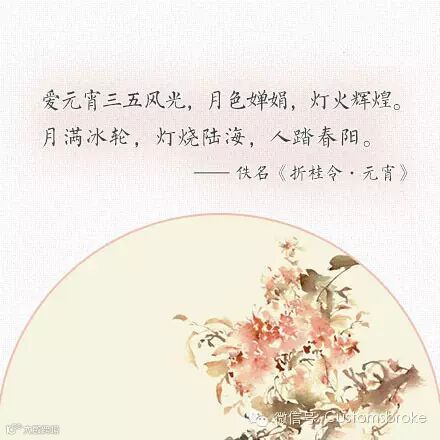 爱元宵三五风光，月色婵娟，灯火辉煌。
月满冰轮，灯烧陆海，人踏春阳。
—— 佚名《折桂令·元宵》
微信号: Customsbroke